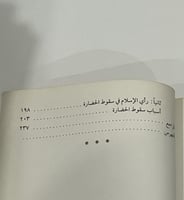 ثانياً : رأي الإسلام في سقوط الحضارة ........ ١٩٨
أسباب سقوط الحضارة ........ ٢٠٣
........ ٢٣٧
* * *